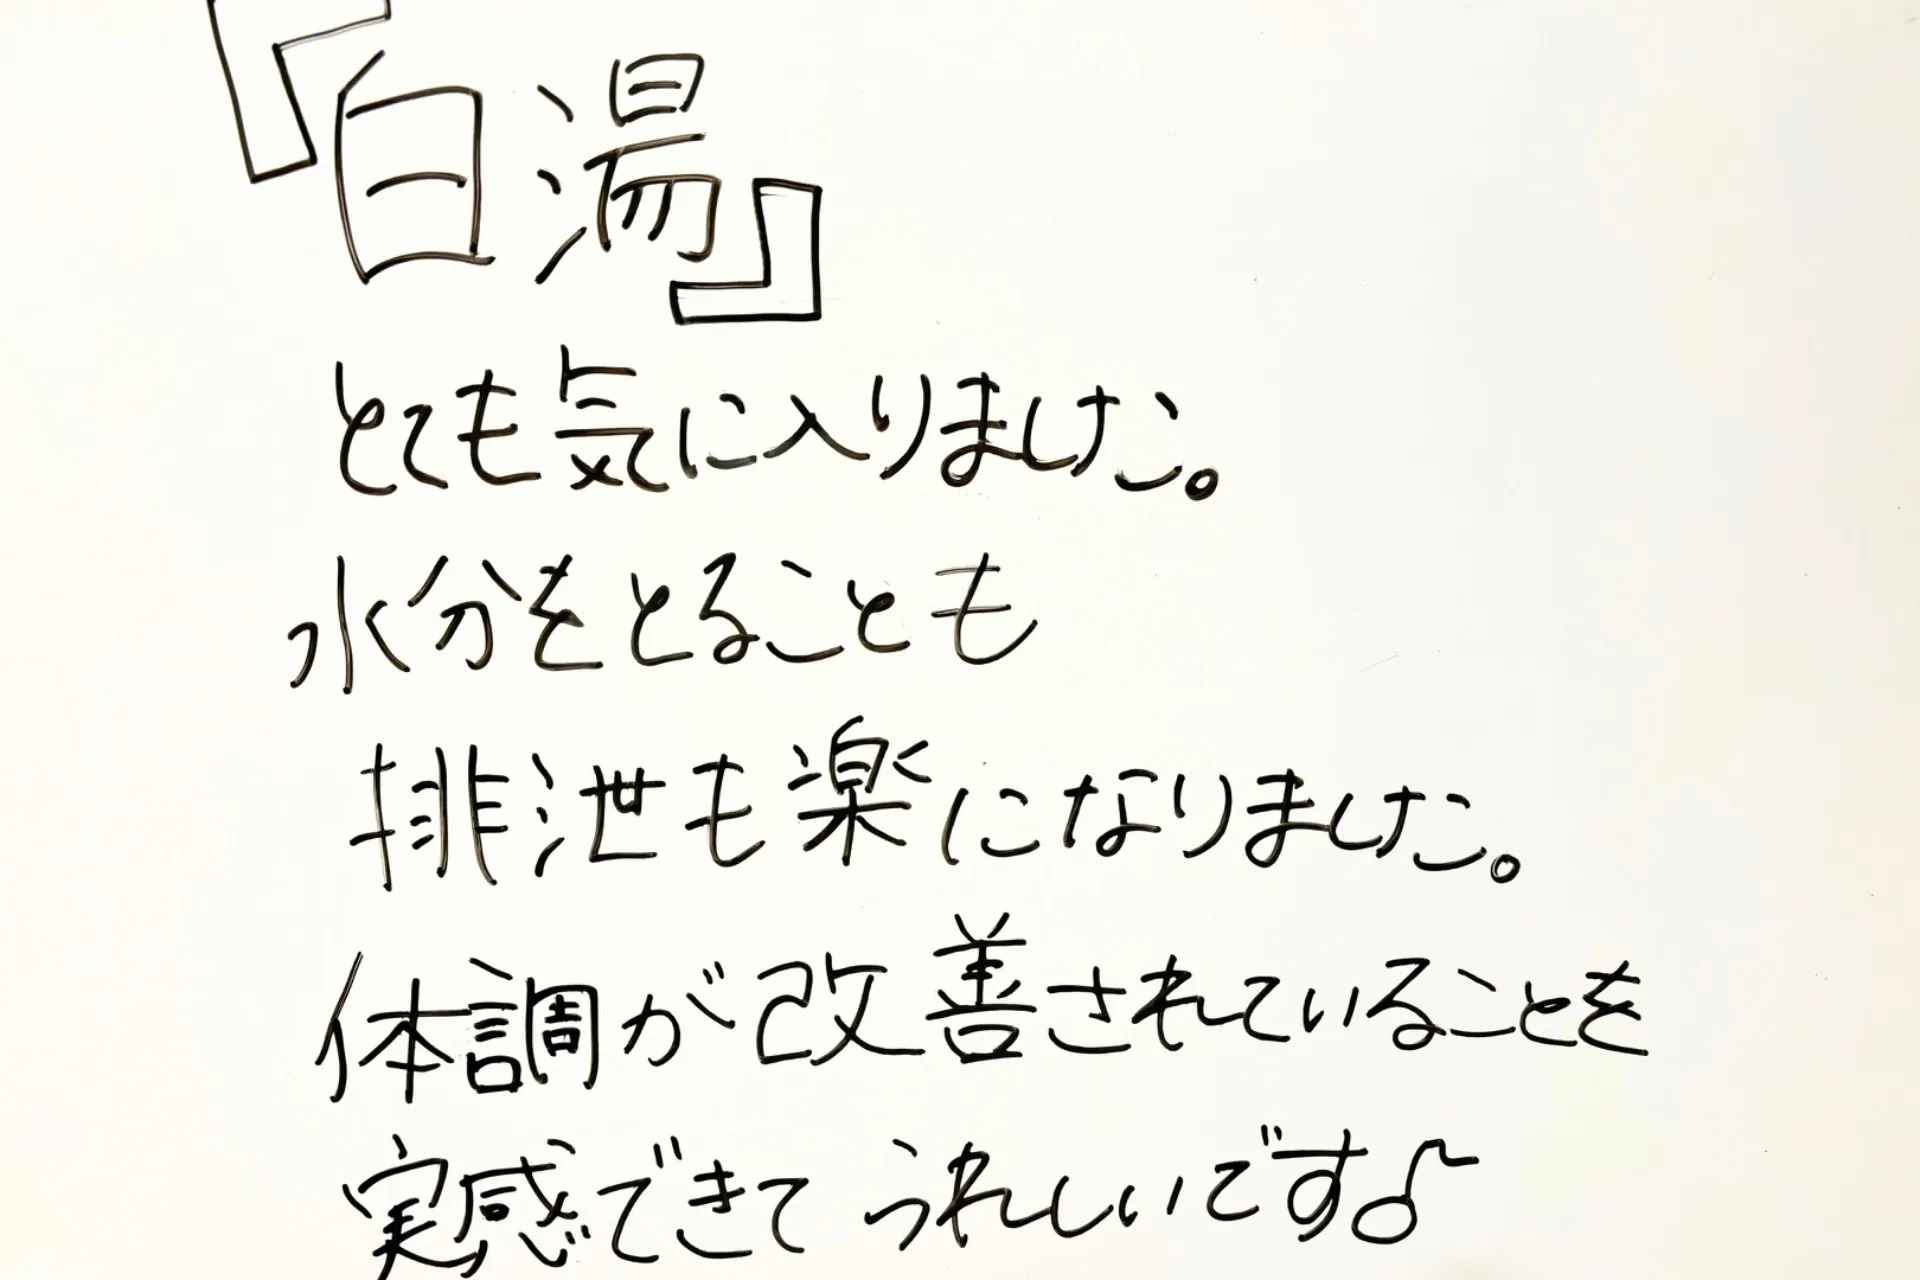 『白湯』
とても気に入りました。
水分をとることも
排泄も楽になりました。
体調が改善されていることを
実感できてうれしいです♪